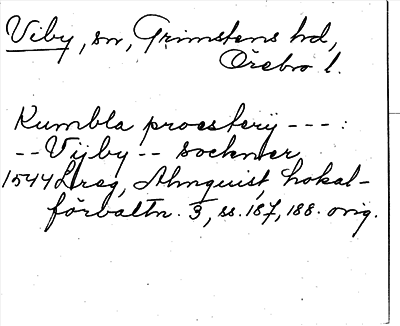 Viby, sn, Grimstens hd,
Örebro l.
Kumbla proesterij --- :
-- Vijby -- sockner
1544 Lreg, Almquist, Lokal-
förvaltn. 3, ss. 187, 188. orig.